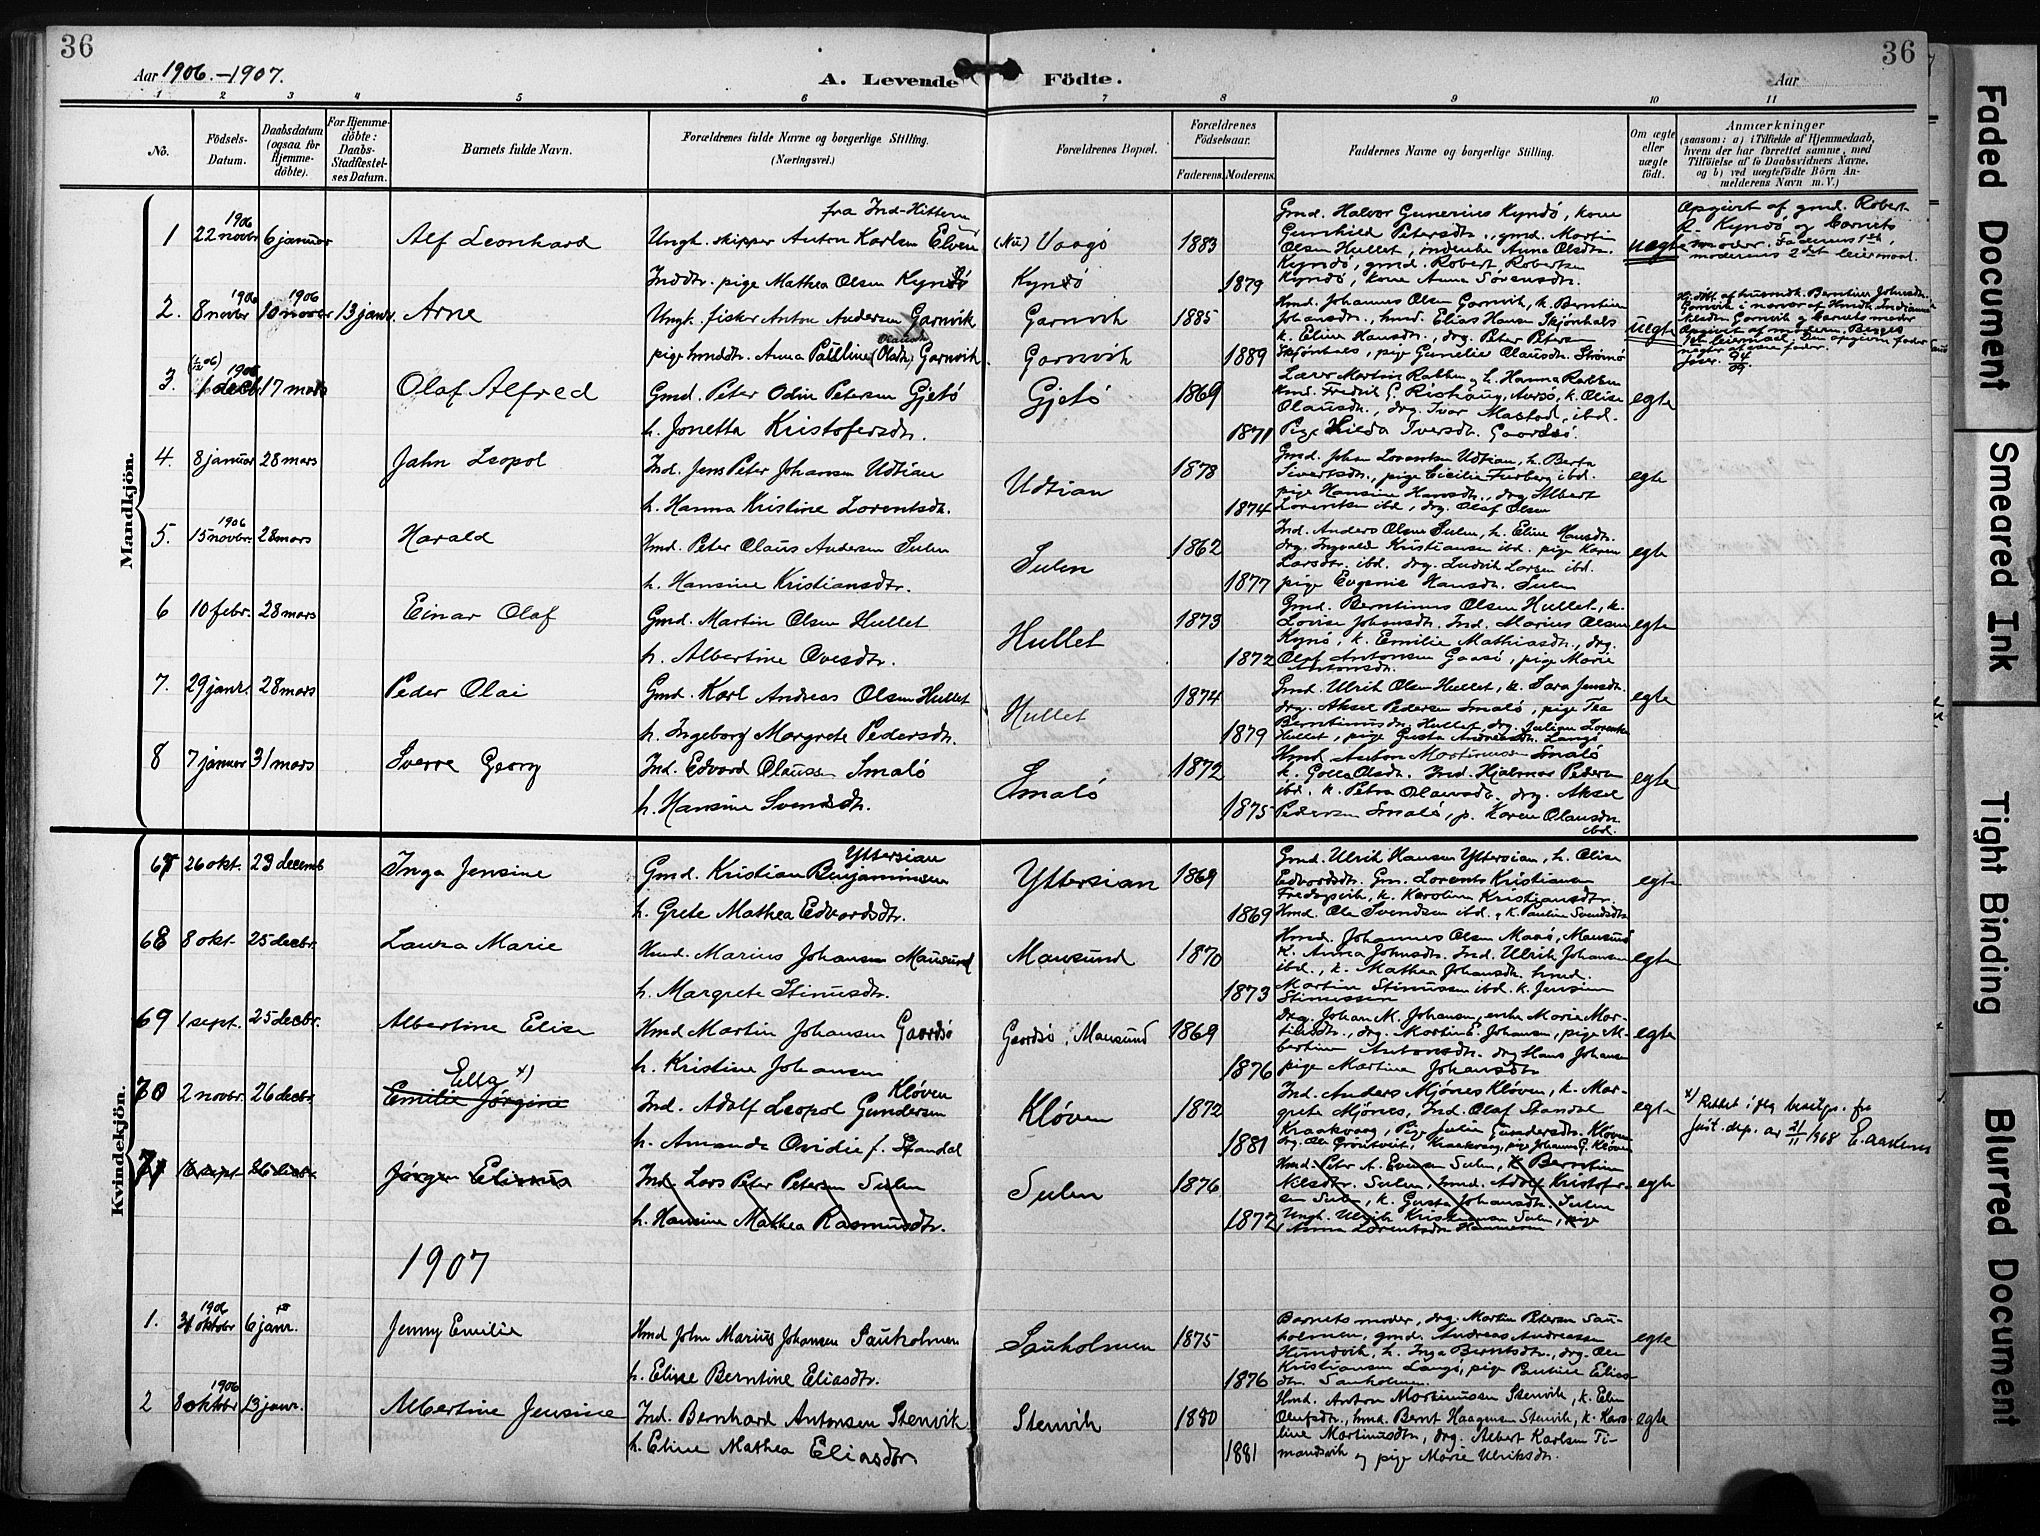 36
Aar 1906.-1907.
A. Levende Födte.
Aar
36
1 2 3 4 5 6 7 8 9 10 11
No.
Födsels-
Datum.
Daabsdatum
(ogsaa for
Hjemme-
döbte).
For Hjemme-
döbte:
Daabs-
Stadfæstel-
ses Datum.
Barnets fulde Navn.
Forældrenes fulde Navne og borgerlige Stilling.
(Næringsvei.)
Forældrenes Bopæl.
Forældrenes
Födselsaar.
Faderens. Moderens.
Faddernes Navne og borgerlige Stilling.
Om ægte
eller
uægte
födt.
Anmærkninger
(saasom: a) i Tilfælde af Hjemmedaab,
hvem der har forrettet samme, med
Tilföielse af to Daabsvidners Navne.
og b) ved uægtefödte Börn An-
melderens Navn m. V.)
Mandkjön.
1 1906 22 novbr 6 januar Alf Leonhard
fra Ind-Hitteren
Ungk. skipper Anton Karlsen Elven (Nu) Vaagø 1883
Inddtr. pige Mathea Olsen Kyndø Kyndø 1879
Gmd. Halvor Gunerius Kyndø, kone
Gunhild Petersdtr., gmd. Martin
Olsen Hullet, inderike Anna Olsdtr.
Kyndø, gmd. Robert Robertsen
Kyndø, kone Anna Sørensdtr.
uægte
Opgivet af gmd. Robert
R. Kyndø og barnets
moder. Faderens 1ste,
moderens 2det leiermaal.
2. 1906 8 novbr 1906 10 novbr 13 janr. Arne
Ungk. fisker Anton Andersen Garnvik Garnvik 1885
pige husmdtr. Anna Pauline (Olsdtr) Garnvik. Garnvik 1889
Hmd. Johannes Olsen Garnvik, k. Berntine
Johansdtr., hmd. Elias Hansen Skjønhals
k. Eline Hansdtr., drg. Peter Peters
Skjønhals, pige Gunelie Olausdtr. Strømø
uægte
3. 1906 1 decbr. 17 mars Olaf Alfred
Gmd. Peter Odin Petersen Gjetø Gjetø 1869
h. Jonetta Kristofersdtr. 1871
Lærer Martin Rabben og h. Hanna Rabben
Kmd. Fredrik G. Rishaug, Aursø, k. Olise
Olausdtr., drg. Ivar Mastad, ibd.
Pige Hilda Iversdtr. Gaardsø.
egte
4. 8 januar 28 mars Jahn Leopol
Ind. Jens Peter Johansen Udtian Udtian 1878
h. Hanna Kristine Lorentsdtr. 1874
Gmd. Johan Lorentsen Udtian, h. Berta
Sivertsdtr., pige Cicilie Furberg ibd.
pige Hansine Hansdtr., drg Albert
Lorentsen ibd, drg. Olaf Olsen
egte
5. 1906 15 novbr. 28 mars Harald
Hmd. Peter Olaus Andersen Sulen Sulen 1862
h. Hansine Kristiansdtr. 1877
Ind. Anders Olsen Sulen, h. Eline Hansdtr.
drg. Ingvald Kristiansen ibd. pige Karen
Larsdtr. ibd. drg. Ludvik Larsen ibd.
pige Eugenie Hansdtr. Sulen
egte
6 10 febr. 28 mars Einar Olaf
Gmd. Martin Olsen Hullet Hullet 1873
h. Albertine Ovesdtr. 1872
Gmd. Berntinus Olsen Hullet, k.
Lovise Johansdtr. Ind. Marius Olsen
Kynø, k. Emilie Mathiasdtr., drg.
Olaf Antonsen Gaasø, pige Marie
Antonsdtr.
egte
7. 29 janr. 28 mars Peder Olai
Gmd. Karl Andreas Olsen Hullet Hullet 1874
h. Ingeborg Margrete Pedersdtr. 1879
Gmd. Ulrik Olsen Hullet, k. Sara Jensdtr.
drg. Aksel Pedersen Smalø, pige Tea
Berntinusdtr. Hullet, drg. Julian Lorentsen
Hullet, pige Gusta Andreasdtr. Langø
egte
8 7 januar 31 mars Sverre Georg
Ind. Edvard Olaussen Smalø Smalø 1872
h. Hansine Svendsdtr. 1875
Hmd. Anton Martinussen Smalø
k. Golla Olsdtr. Ind. Hjalmar Pedersen
ibd. k. Petra Olausdtr. drg. Aksel
Pedersen Smalø, p. Karen Olausdtr.
ibd.
egte
Kvindekjön.
67 26 okt. 23 decemb Inga Jensine
Yttersian
Gmd. Kristian Benjaminsen Yttersian 1869
h. Grete Mathea Edvardsdtr. 1869
Gmd. Ulrik Hansen Yttersian, h. Olise
Edvardsdtr. Gm. Lorents Kristiansen
Fredagsvik, k. Karoline Kristiansdtr.
Hmd. Ole Svendsen ibd. & k. Pauline Svendsdtr.
egte
68 8 okt. 25 decbr. Laura Marie
Hmd. Marius Johansen Mausund Mausund 1870
h. Margrete Stinusdtr. 1873
Hmd. Johannes Olsen Maaø, Mausund
k. Anna Johnsdtr. Ind. Ulrik Johansen
ibd., k. Mathea Johansdtr. hmd.
Martin Stinussen ibd. k. Jensine
Stinussen
egte
69 1 sept. 25 decbr. Albertine Elise
Hmd Martin Johansen Gaardsø Gaardsø, Mausund 1869
h. Kristine Johansen 1876
Drg. Johan M. Johansen, enke Marie Mar-
tinsdtr., drg. Martin E. Johansen, pige Al-
bertine Antonsdtr. drg Hans Johansen
pige Martine Johansdtr
egte
70 2 novbr. 26 decbr. Ella x)
Emilie Jørgine
Kløven
Ind. Adolf Leopol Gundersen Kløven 1872
h. Amanda Ovidie f. Standal 1881
Ind. Anders Mjønes Kløven, k. Mar-
grete Mjønes, Ind. Olaf Standal
Kraakvaag, Pige Julie Gundersdtr. Kløven
drg. Ole Grøntveit, Kraakvaag, pige Johanna G. Kløven
egte
x) Rettet iflg beslipn. fra
Just. dep. av 21/11 1968 E. Aaskens
71 16 sept 26 decbr. Jørgen Elisius
Ind. Lars Peter Petersen Sulen Sulen 1876
h. Hansine Mathea Rasmusdtr. 1872
Hmd. Peter A. Evensen Sulen, k. Berntine
Nilsdtr. Sulen, hmd. Adolf Kristofer-
sen Sulen, k. Gusta Johansdtr. Sulen
Ungk. Ulrik Kristiansen Sulen, pige
Anna Lorentsdtr. Hammeren
egte
1907
1. 1906 31 oktobr 6 janr. Jenny Emilie
Hmd John Marius Johansen Sauholmen Sauholmen 1875
h. Elise Berntine Eliasdtr. 1876
Barnets moder, drg. Martin Petersen Sau-
holmen, gmd. Andreas Andreassen
Hundvik, h. Inga Berntsdtr., drg. Ole
Kristiansen Langø, pige Pauline Elias-
dtr. Sauholmen.
egte
2 1906 8 oktobr 13 janr. Albertine Jensine
Ind. Bernhard Antonsen Stenvik Stenvik 1880
h. Eline Mathea Eliasdtr 1881
Hmd. Anton Martinussen Stenvik, k. Elen
Olufsdtr., hmd. Bernt Haagensen Stenvik, k. Karo-
line Martinusdtr., drg. Albert Karlsen Ti-
mandsvik og pige Marie Ulriksdtr.
egte
Faded Document
Smeared Ink
Tight Binding
Blurred Document